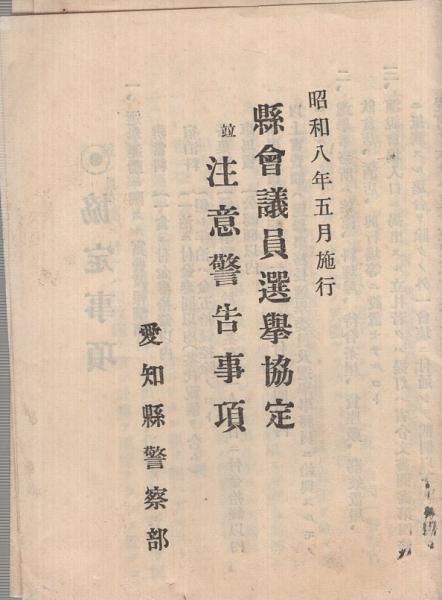 昭和八年五月施行
縣會議員選擧協定
竝注意警告事項
愛知縣警察部